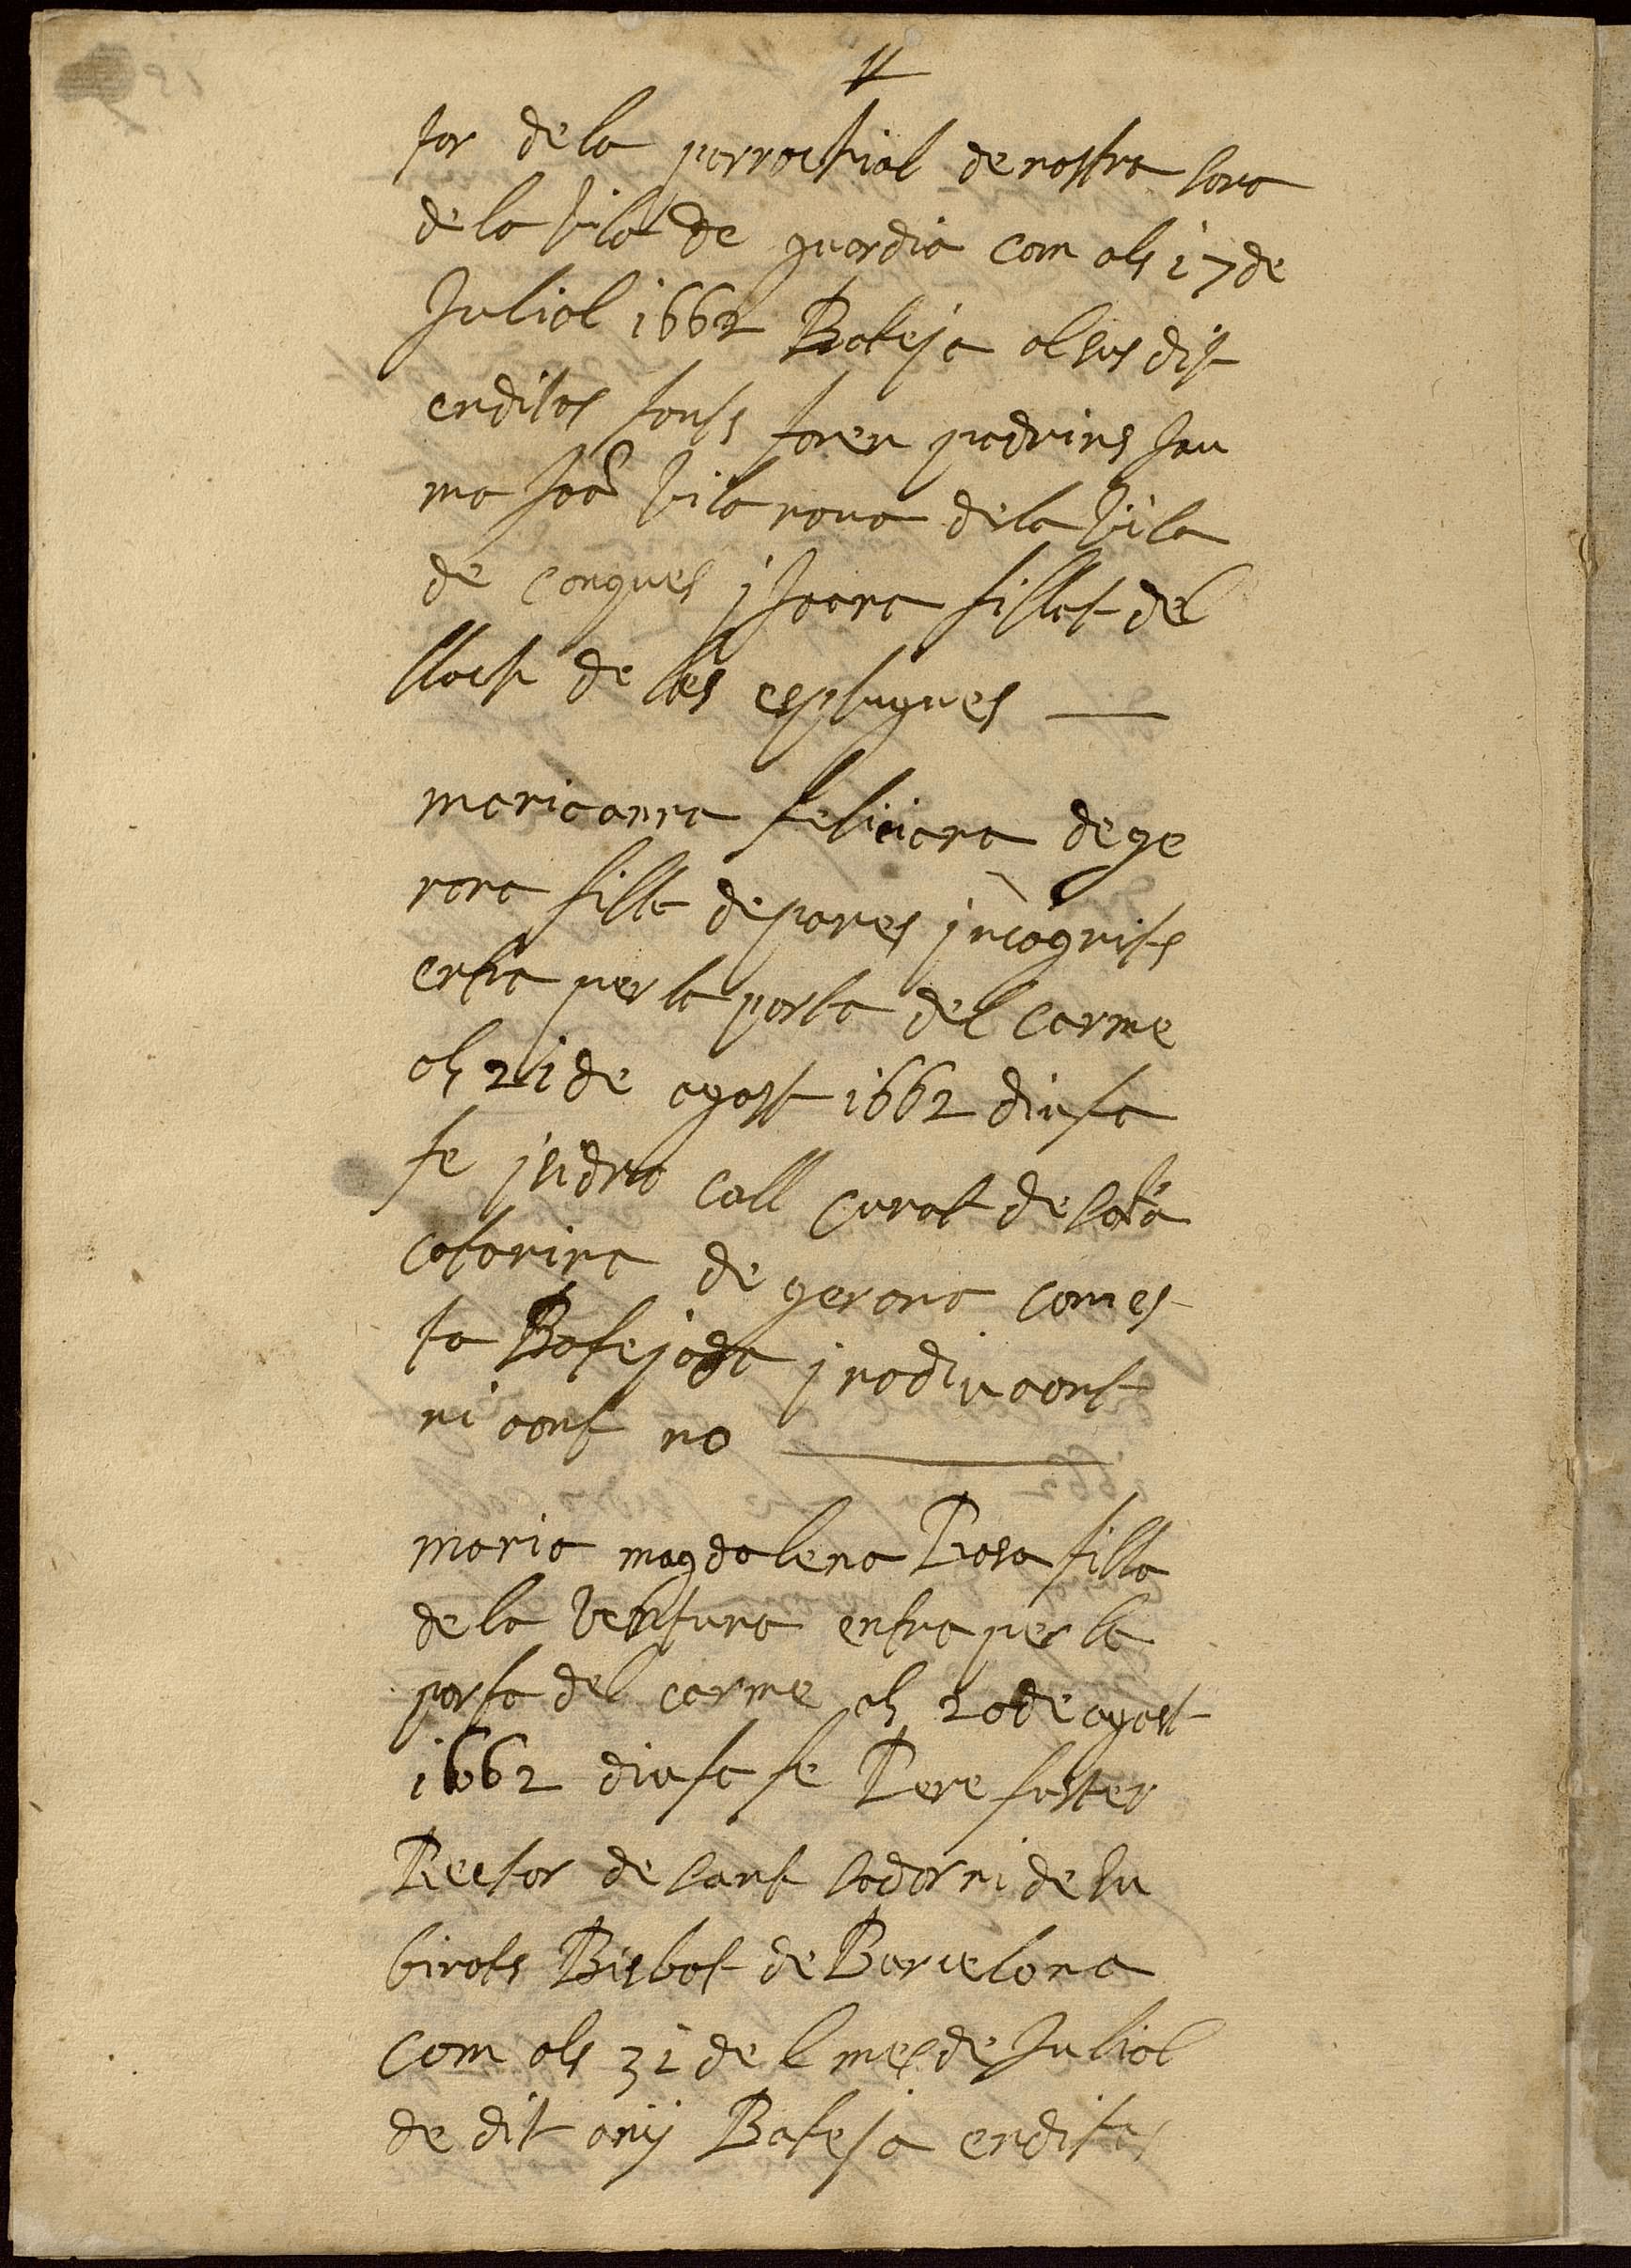 tor de la parrochial de nostra sora
de la vila de guardia com als 17 de
Juliol 1662 Bateja al sus dit
en ditas fonts foren padrins Jau
ma Joã vila nova de la vila
de conques j Joana fillet del
lloch de les esplugues
mariaanna feliciana de ge
rona filla de pares jncognits
entra per la porta del carme
als 21 de agost 1662 diu fa
fe jsidro coll curat de sãta
catarina de gerona com es
ta Batejada j no diu aont
ni aont no
maria magdalena Rosa filla
de la ventura entra per la
porta del carme als 20 de agost
1662 diu fa fe Pere fuster
Rector de sant sadorni de su
birats Bisbat de Barcelona
com als 31 del mes de Juliol
de dit anÿ Bateja en ditas